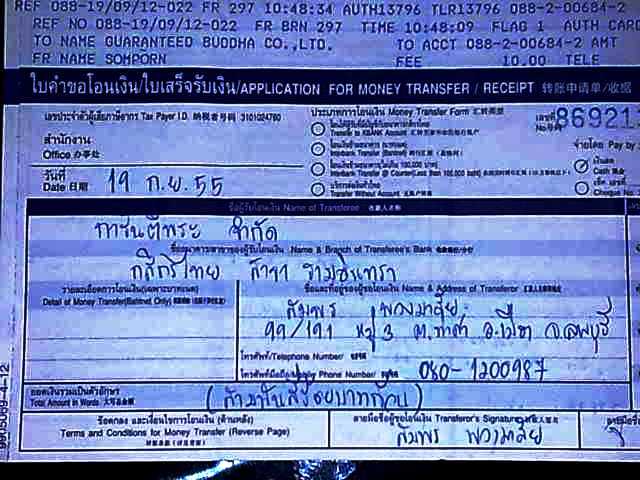 REF 088-19/09/12-022 FR 297 10:48:34 AUTH13796 TLR13796 088-2-00684-2
REF NO 088-19/09/12-022 FR BRN 297 TIME 10:48:09 FLAG 1 AUTH CARD
TO NAME GUARANTEED BUDDHA CO.,LTD. TO ACCT 088-2-00684-2 AMT
FR NAME SOMPORN FEE 10.00 TELE
ใบคำขอโอนเงิน/ใบเสร็จรับเงิน/APPLICATION FOR MONEY TRANSFER / RECEIPT 转账申请单/收据
เลขประจำตัวผู้เสียภาษีอากร Tax Payer I.D. 纳税者号码 3101024760
ประเภทการโอนเงิน Money Transfer Form 汇款类型
เลขที่ No.号码 869211
สำนักงาน
Office 办事处
Transfer to KBANK Account
Interbank Transfer (Bahtnet)
Interbank Transfer @ Counter(Less than 100,000 baht)
บริการส่งเงินทั่วไทย
Transfer Without Account
จ่ายโดย Pay by
เงินสด
Cash 现金
เช็ค เลขที่
Cheque No.
วันที่
Date 日期 19 ก.ย. 55
ชื่อผู้รับโอนเงิน Name of Transferee 收款人名称
การันตีพระ จำกัด
ชื่อธนาคารสาขาของผู้รับโอนเงิน Name & Branch of Transferee's Bank
กสิกรไทย สาขา รามอินทรา
รายละเอียดการโอนเงิน(เฉพาะบาทเนต)
Detail of Money Transfer(Bahtnet Only)
ชื่อและที่อยู่ของผู้ขอโอนเงิน Name & Address of Transferor
สมพร พวงมาลัย
99/191 หมู่ 3 ต.ท่าศาลา อ.เมือง จ.ลพบุรี
โทรศัพท์/Telephone Number/
โทรศัพท์มือถือ/Mobile Phone Number/ 080-1200987
ยอดเงินรวมเป็นตัวอักษร
Total Amount in Words 大写总额
(สามพันสี่ร้อยบาทถ้วน)
ข้อตกลง และเงื่อนไขการโอนเงิน (ด้านหลัง)
Terms and Conditions for Money Transfer (Reverse Page)
ลายมือชื่อผู้ขอโอนเงิน Transferor's Signature
สมพร พวงมาลัย